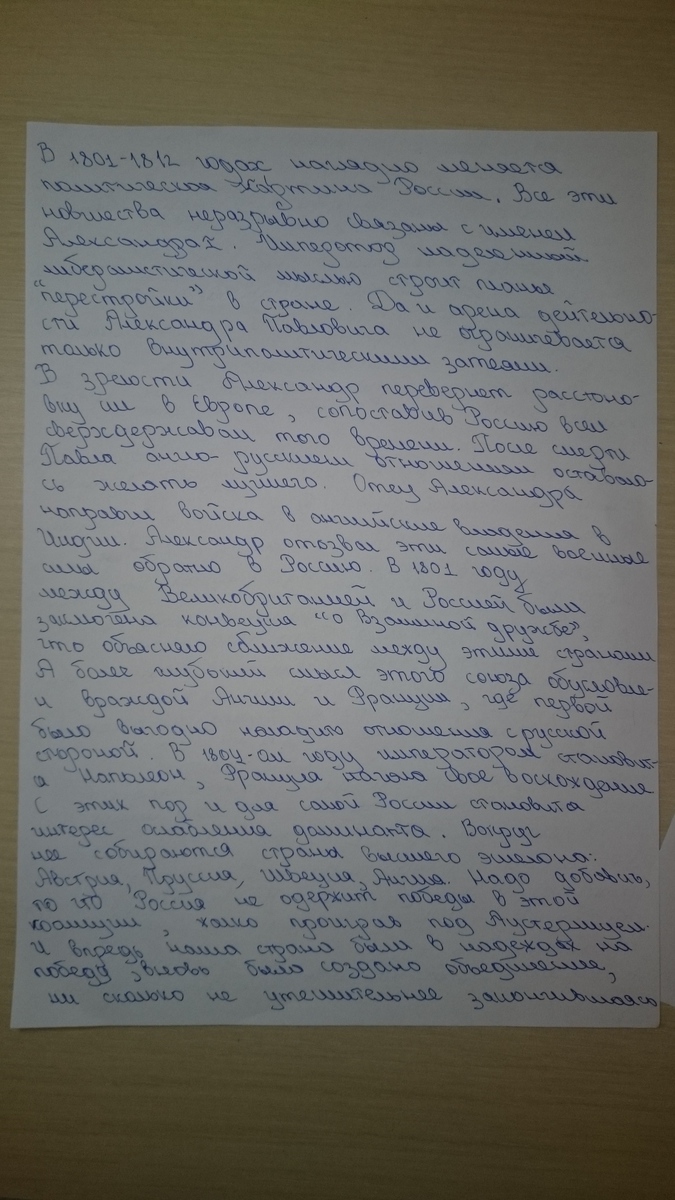 В 1801-1812 годах наглядно меняется
политическая картина России. Все эти
новшества неразрывно связаны с именем
Александра I. Император наделенный
либералистической мыслью строит планы
"перестройки" в стране. Да и арена дейтельно-
сти Александра Павловича не ограничевается
только внутриполитическими затеями.
В зрелости Александр перевернет расстано-
вку сил в Европе, сопоставив Россию всем
сверждержавам того времени. После смерти
Павла англо-русским отношениям оставало-
сь желать лучшего. Отец Александра
направил войска в английские владения в
Индии. Александр отозвал эти самые военные
силы обратно в Россию. В 1801 году
между Великобританией и Россией была
заключена конвеция "о Взаимной дружбе",
что объясняло сближение между этими странами
А более глубокий смысл этого союза обусловле-
н враждой Англии и Франции, где первой
было выгодно наладить отношения с русской
стороной. В 1804-ом году императором становит-
ся Наполеон, Франция начала свое восхождение
С этих пор и для самой России становится
интерес ослабления доминанта. Вокруг
нее собираются страны высшего эшелона:
Австрия, Пруссия, Швеция, Англия. Надо добавить,
то что Россия не одержит победы в этой
коалиции, жалко проиграв под Аустерлицем.
И впредь наша страна была в надеждах на
победу, вновь было создано объединение,
ни сколько не утешительнее закончившаяся